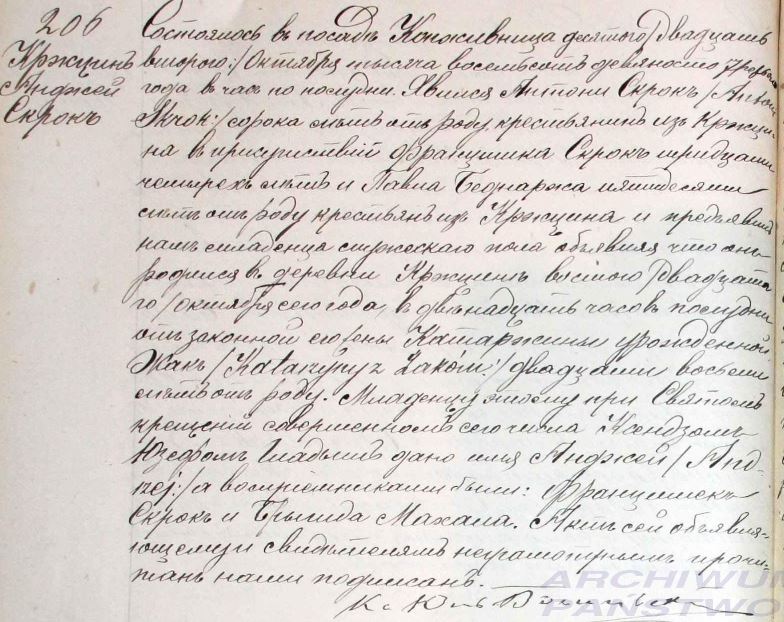 206
Кржцинъ
Анджей
Скрокъ
Состоялось въ посадѣ Конживница десятого/Двадцать
второго:/Октября тысяча восемьсотъ девяносто
года въ часъ по полудни. Явился Антони Скрокъ /Antoni
Skrok:/ сорока лѣтъ отъ роду, крестьянинъ изъ Кржци-
на въ присутствіи Францишка Скрокъ тридцати
четырехъ лѣтъ и Павла Беднаржа пятидесяти
лѣтъ отъ роду крестьянъ изъ Кржцина и предъявилъ
намъ младенца мужескаго пола объявляя что онъ
родился въ деревни Кржцинъ восмого/Двадцата
го/октября сего года, въ двѣнадцать часовъ пополудни
отъ законной его жены Катаржины урожденной
Жакъ /Katarzyny z Żaków:/ двадцати восьми
лѣтъ отъ роду. Младенцу этому при Святомъ
крещеніи совершенномъ сего числа Ксендзомъ
Юзефомъ дано имя Анджей /And-
rzej:/ а воспріемниками были: Францишекъ
Скрокъ и Брыгида Махала. Актъ сей объявля-
ющему и свидѣтелямъ неграмотнымъ прочи-
танъ нами подписанъ.
ARCHIWUM
PAŃSTWO